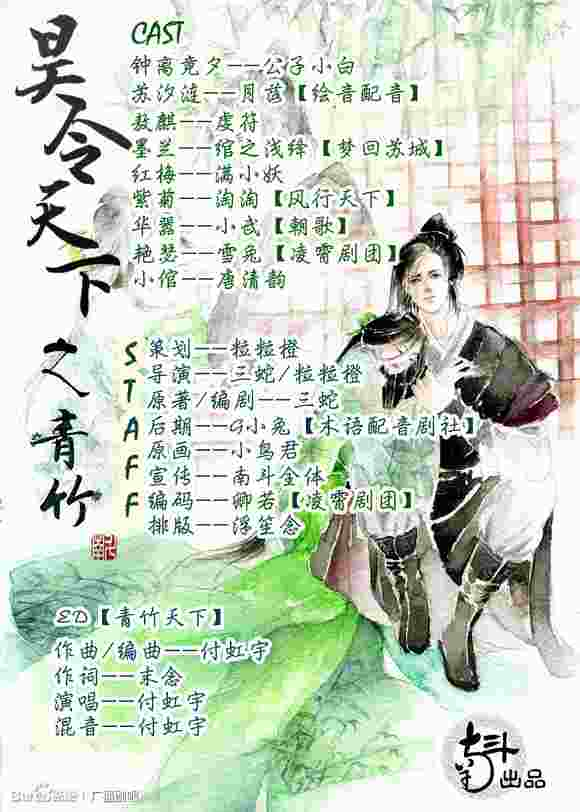 昊令天下之青竹
CAST
钟离竞夕——公子小白
苏汐涟——月荔【绘音配音】
敖麒——虔符
墨兰——绾之浅绛【梦回苏城】
红梅——满小妖
紫菊——淘淘【风行天下】
华嚣——小武【朝歌】
艳瑟——雪兔【凌霄剧团】
小倌——唐清韵
STAFF
策划——粒粒橙
导演——三蛇/粒粒橙
原著/编剧——三蛇
后期——G小兔【木语配音剧社】
原画——小鸟君
宣传——南斗全体
编码——卿若【凌霄剧团】
排版——浮笙念
ED【青竹天下】
作曲/编曲——付虹宇
作词——末念
演唱——付虹宇
混音——付虹宇
南斗出品